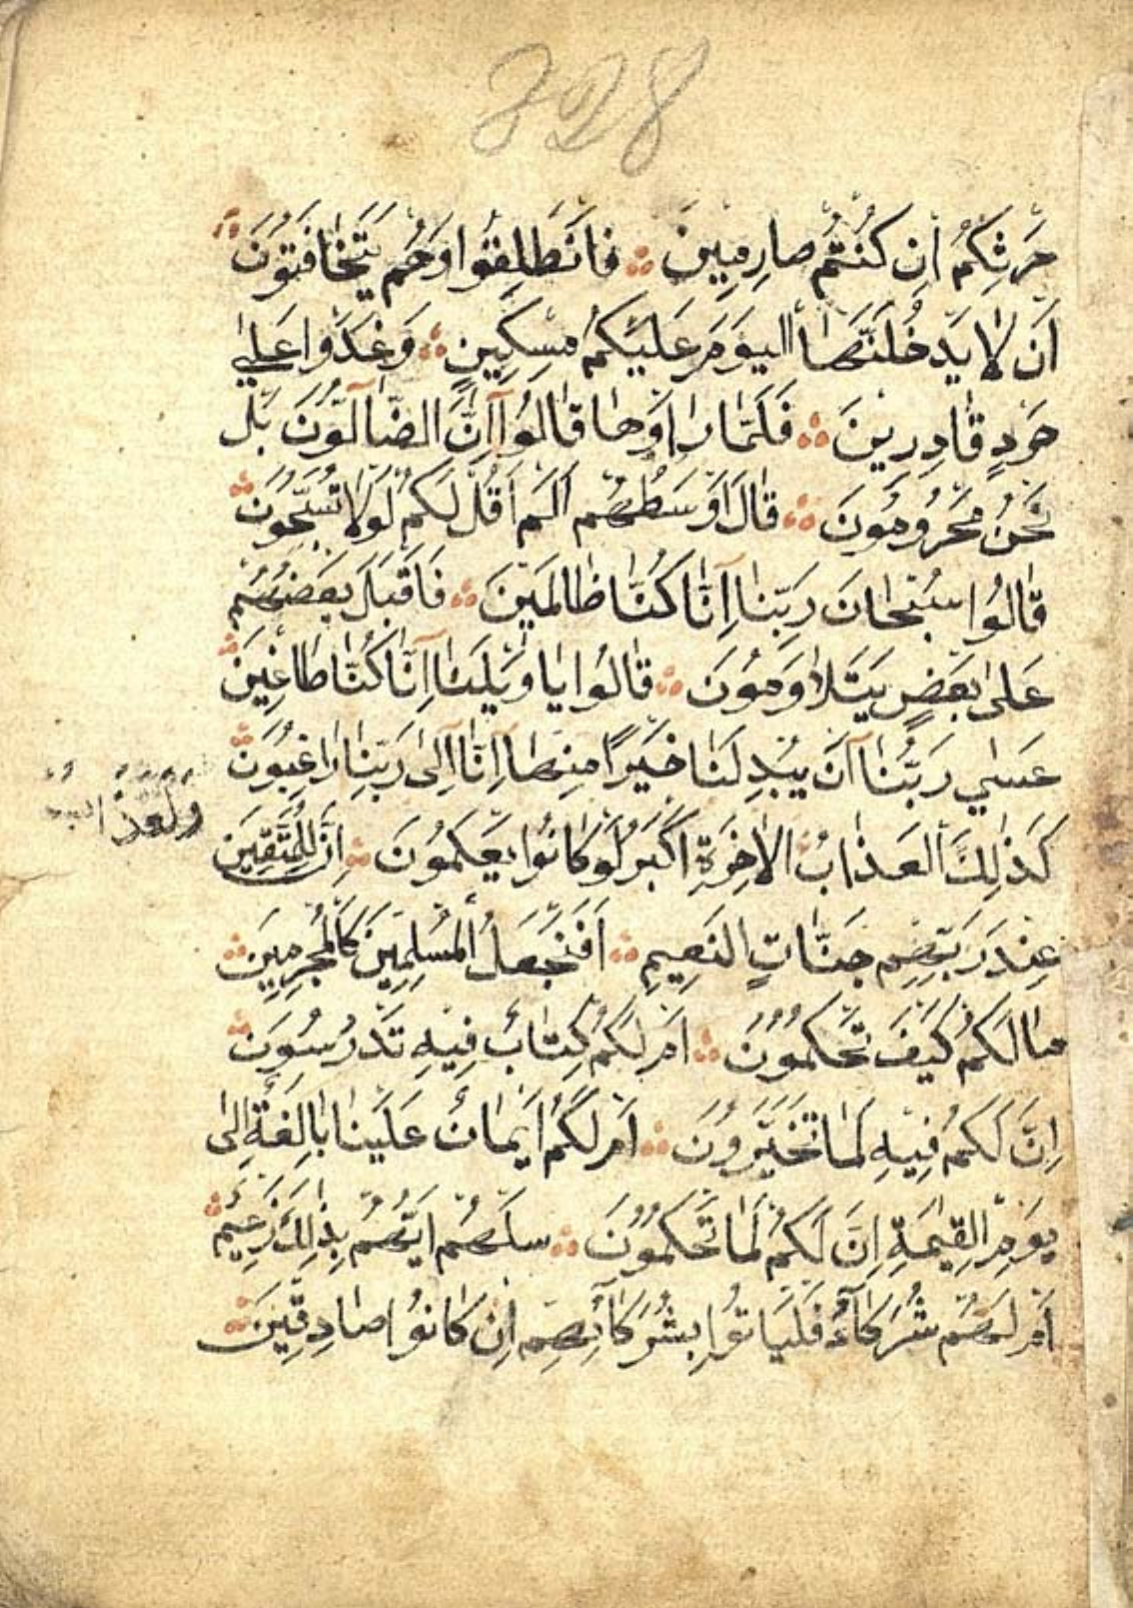 328
حَرْثِكُمْ اِنْ كُنْتُمْ صَارِمِينَ ۞ فَانْطَلَقُوا وَهُمْ يَتَخَافَتُونَ
اَنْ لَا يَدْخُلَنَّهَا الْيَوْمَ عَلَيْكُمْ مِسْكِينٌ ۞ وَغَدَوْا عَلٰى
حَرْدٍ قَادِرِينَ ۞ فَلَمَّا رَاَوْهَا قَالُوا اِنَّا لَضَالُّونَ بَلْ
نَحْنُ مَحْرُومُونَ ۞ قَالَ اَوْسَطُهُمْ اَلَمْ اَقُلْ لَكُمْ لَوْلَا تُسَبِّحُونَ ۞
قَالُوا سُبْحَانَ رَبِّنَا اِنَّا كُنَّا ظَالِمِينَ ۞ فَاَقْبَلَ بَعْضُهُمْ
عَلٰى بَعْضٍ يَتَلَاوَمُونَ ۞ قَالُوا يَا وَيْلَنَا اِنَّا كُنَّا طَاغِينَ ۞
عَسٰي رَبُّنَا اَنْ يُبْدِلَنَا خَيْرًا مِنْهَا اِنَّا اِلٰى رَبِّنَا رَاغِبُونَ ۞
كَذٰلِكَ الْعَذَابُ الْاٰخِرَةِ اَكْبَرُ لَوْ كَانُوا يَعْلَمُونَ ۞ اِنَّ لِلْمُتَّقِينَ
ولعذاب
عِنْدَ رَبِّهِمْ جَنَّاتِ النَّعِيمِ ۞ اَفَنَجْعَلُ الْمُسْلِمِينَ كَالْمُجْرِمِينَ ۞
مَا لَكُمْ كَيْفَ تَحْكُمُونَ ۞ اَمْ لَكُمْ كِتَابٌ فِيهِ تَدْرُسُونَ ۞
اِنَّ لَكُمْ فِيهِ لَمَا تَخَيَّرُونَ ۞ اَمْ لَكُمْ اَيْمَانٌ عَلَيْنَا بَالِغَةٌ اِلٰى
يَوْمِ الْقِيٰمَةِ اِنَّ لَكُمْ لَمَا تَحْكُمُونَ ۞ سَلْهُمْ اَيُّهُمْ بِذٰلِكَ زَعِيمٌ ۞
اَمْ لَهُمْ شُرَكَآءُ فَلْيَاْتُوا بِشُرَكَآئِهِمْ اِنْ كَانُوا صَادِقِينَ ۞